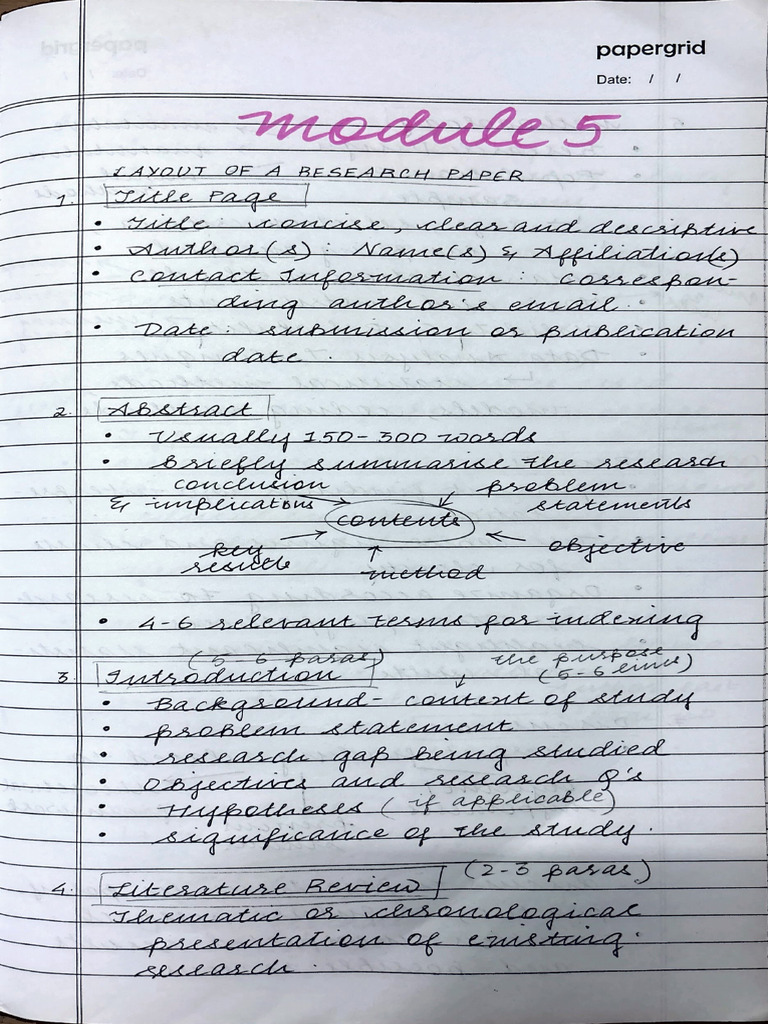 papergrid
Date: / /
module 5
LAYOUT OF A RESEARCH PAPER
1. Title Page
• Title: concise, clear and descriptive
• Author(s): Name(s) & Affiliation(s)
• Contact Information: correspon-
ding author's email.
• Date: submission or publication
date.
2. Abstract
• Usually 150-300 words
• Briefly summarise the research
conclusion problem
& implications contents statements
key objective
results method
• 4-6 relevant terms for indexing
(5-6 paras) the purpose
3. Introduction (5-6 lines)
• Background - context of study
• problem statement
• research gap being studied
• Objectives and research Q's
• Hypotheses (if applicable)
• significance of the study.
4. Literature Review (2-3 paras)
Thematic or chronological
presentation of existing
research.